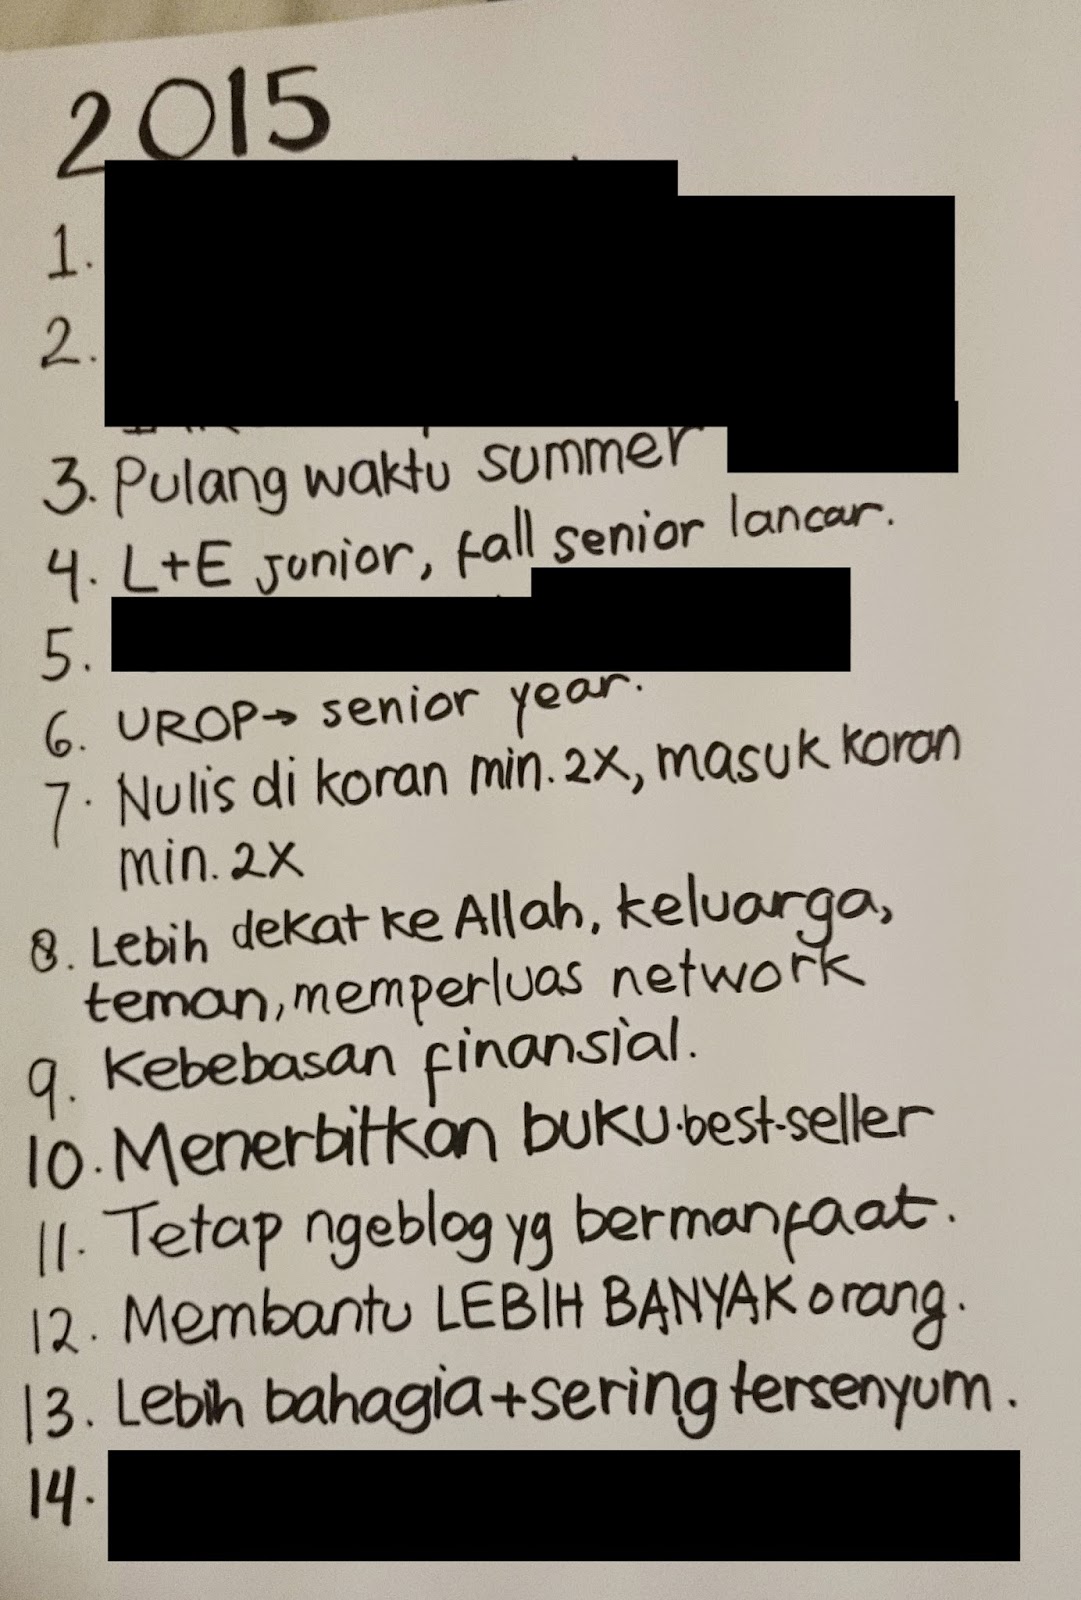 2015
1.
2.
3. Pulang waktu summer
4. L+E junior, fall senior lancar.
5.
6. UROP→ senior year.
7. Nulis di koran min. 2X, masuk koran
min. 2X
8. Lebih dekat ke Allah, keluarga,
teman, memperluas network
9. Kebebasan finansial.
10. Menerbitkan buku best-seller
11. Tetap ngeblog yg bermanfaat.
12. Membantu LEBIH BANYAK orang.
13. Lebih bahagia+sering tersenyum.
14.